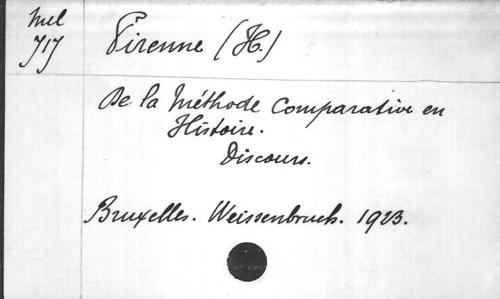 Mel
717
Pirenne (H.)
De la Méthode Comparative en
Histoire.
Discours.
Bruxelles. Weissenbruch. 1923.